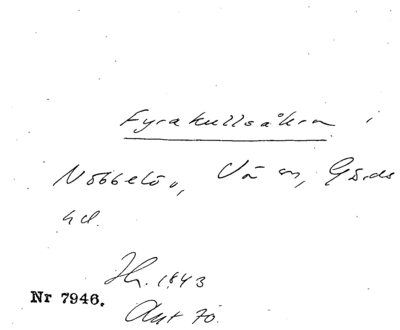 Fyrakullsåkra i
Nöbbelöv, Vä sn, Gärds
hd.
Hr. 1843
Nr 7946.
Akt 70.